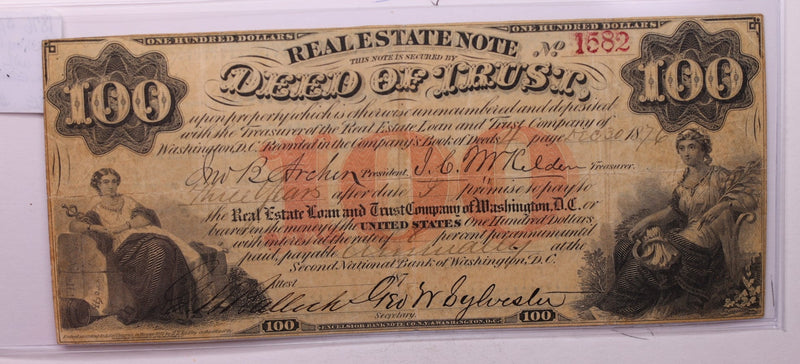 ONE HUNDRED DOLLARS
ONE HUNDRED DOLLARS
REAL ESTATE NOTE No 1582
THIS NOTE IS SECURED BY
100 DEED OF TRUST, 100
upon property which is otherwise unencumbered and deposited
with the Treasurer of the Real Estate Loan and Trust Company of
Washington, D.C. Recorded in the Company's Book of Deeds page Dec 30 1876
Jno B. Archer President, J. C. McKelden Treasurer.
Three years after date I promise to pay to
the Real Estate Loan and Trust Company of Washington, D.C. or
bearer in the money of the UNITED STATES One Hundred Dollars
with interest at the rate of 8 per cent per annum until
paid, payable annually at the
Second National Bank of Washington, D.C.
Attest
Bullock Geo W Sylvester
Secretary.
100 EXCELSIOR BANK NOTE CO. N.Y. & WASHINGTON, D.C. 100